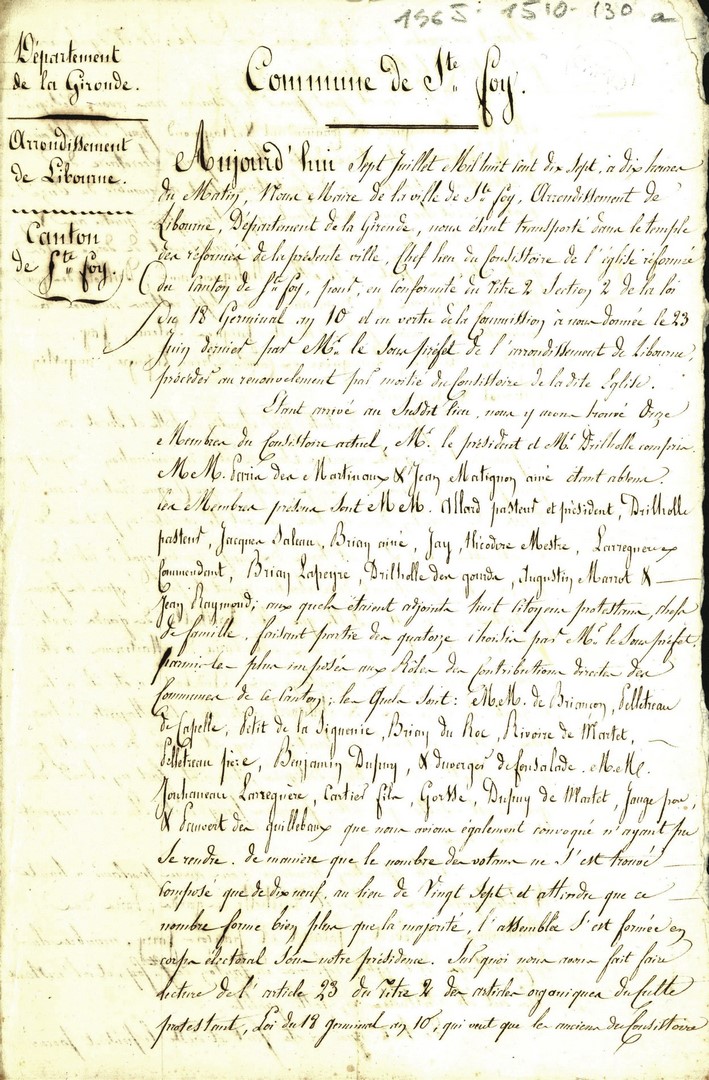 1965. 1510-130 a
Département
de la Gironde.
Arrondissement
de Libourne.
Canton
de Ste Foy.
Commune de Ste Foy.
Aujourd'hui Sept Juillet Mil huit cent dix sept, à dix heures
du Matin, Nous Maire de la ville de Ste Foy, Arrondissement de
Libourne, Département de la Gironde, nous étant transporté dans le temple
des réformés de la présente ville, Chef lieu du Consistoire de l'église réformée
du Canton de Ste Foy, pour, en conformité du Titre 2 Section 2 de la loi
du 18 Germinal an 10 et en vertu de la Commission à nous donnée le 23
Juin dernier par Mr. le Sous préfet de l'arrondissement de Libourne,
procéder au renouvelement par moitié du Consistoire de la dite Eglise.
Etant arrivé au Susdit lieu, nous y avons trouvé Onze
Membres du Consistoire actuel, Mr. le président et Mr. Drilholle compris.
MM. des Martinaux & Jean Matignon ainé étant absens.
Les Membres présens sont MM. Allard pasteur et président, Drilholle
pasteur, Jacques Saleau, Brian ainé, Jay, théodore Mestre, Larregneux
Commendant, Brian Lapeyre, Drilholle des gourds, Augustin Marrot &
Jean Raymond; aux quels étaient adjoints huit citoyens protestans, chefs
de famille, faisant partie des quatorze choisis par Mr. le Sous préfet,
parmi les plus imposés aux Rôles des Contributions directes des
Communes de ce Canton; les Quels sont: MM. de Briançon, Pelletreau
de Capelle, Petit de la Siguenie, Brian du Roc, Rivoire de Martet,
Pelletreau père, Benjamin Dupuy, & duverger de fonsalade. MM.
Jouhaneau Larregnère, Cartier fils, Gorsse, Dupuy de Martet, Jauge père,
& Sauvert des quillebaux que nous avions également convoqué n'ayant pu
Se rendre. de maniere que le nombre des votans ne S'est trouvé
composé que de dix neuf, au lieu de Vingt Sept et attendu que ce
nombre forme bien plus que la majorité, l'assemblée S'est formée en
corps électoral Sous notre présidence. Sur quoi nous avons fait faire
lecture de l'article 23 du Titre 2 des articles organiques du Culte
protestant, Loi du 18 germinal an 10, qui veut que les anciens du Consistoire